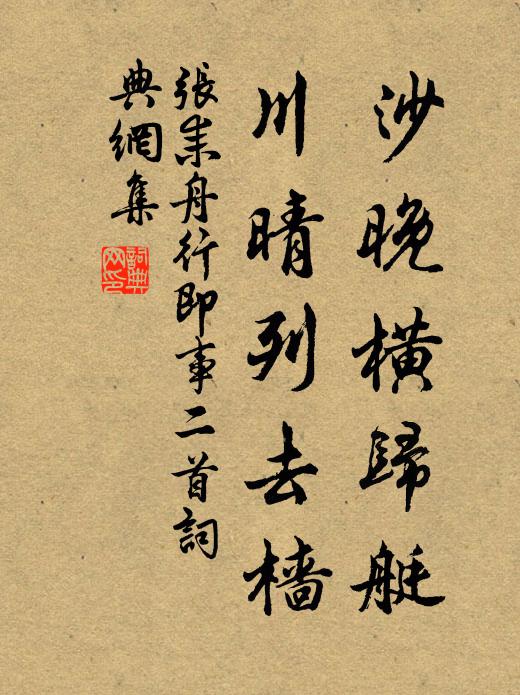 沙晚橫歸艇
川晴列去檣
張耒舟行即事二首詞
典網集
詞典網印